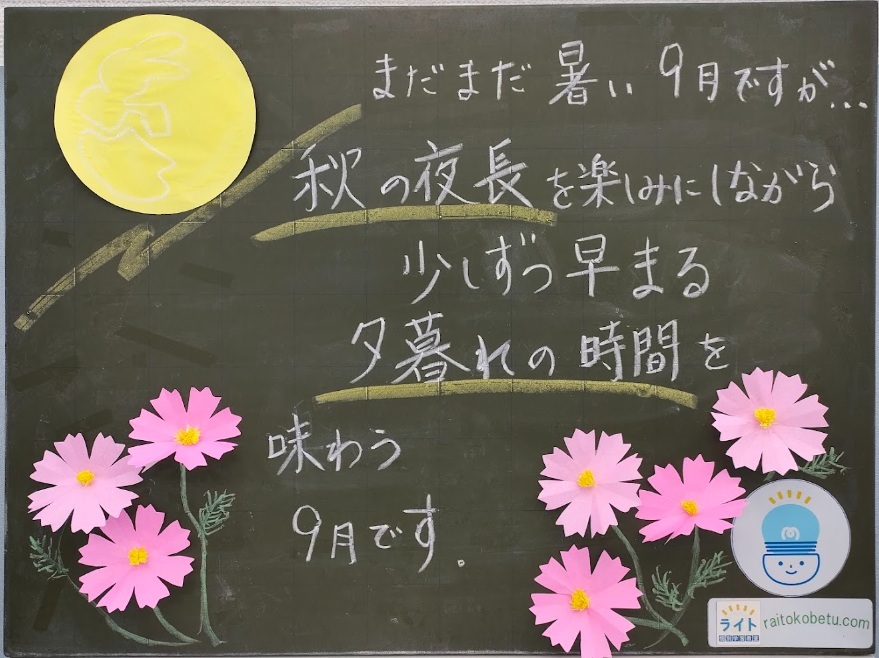 まだまだ暑い9月ですが...
秋の夜長を楽しみにしながら
少しずつ早まる
夕暮れの時間を
味わう
9月です.
ライト
raitokobetu.com